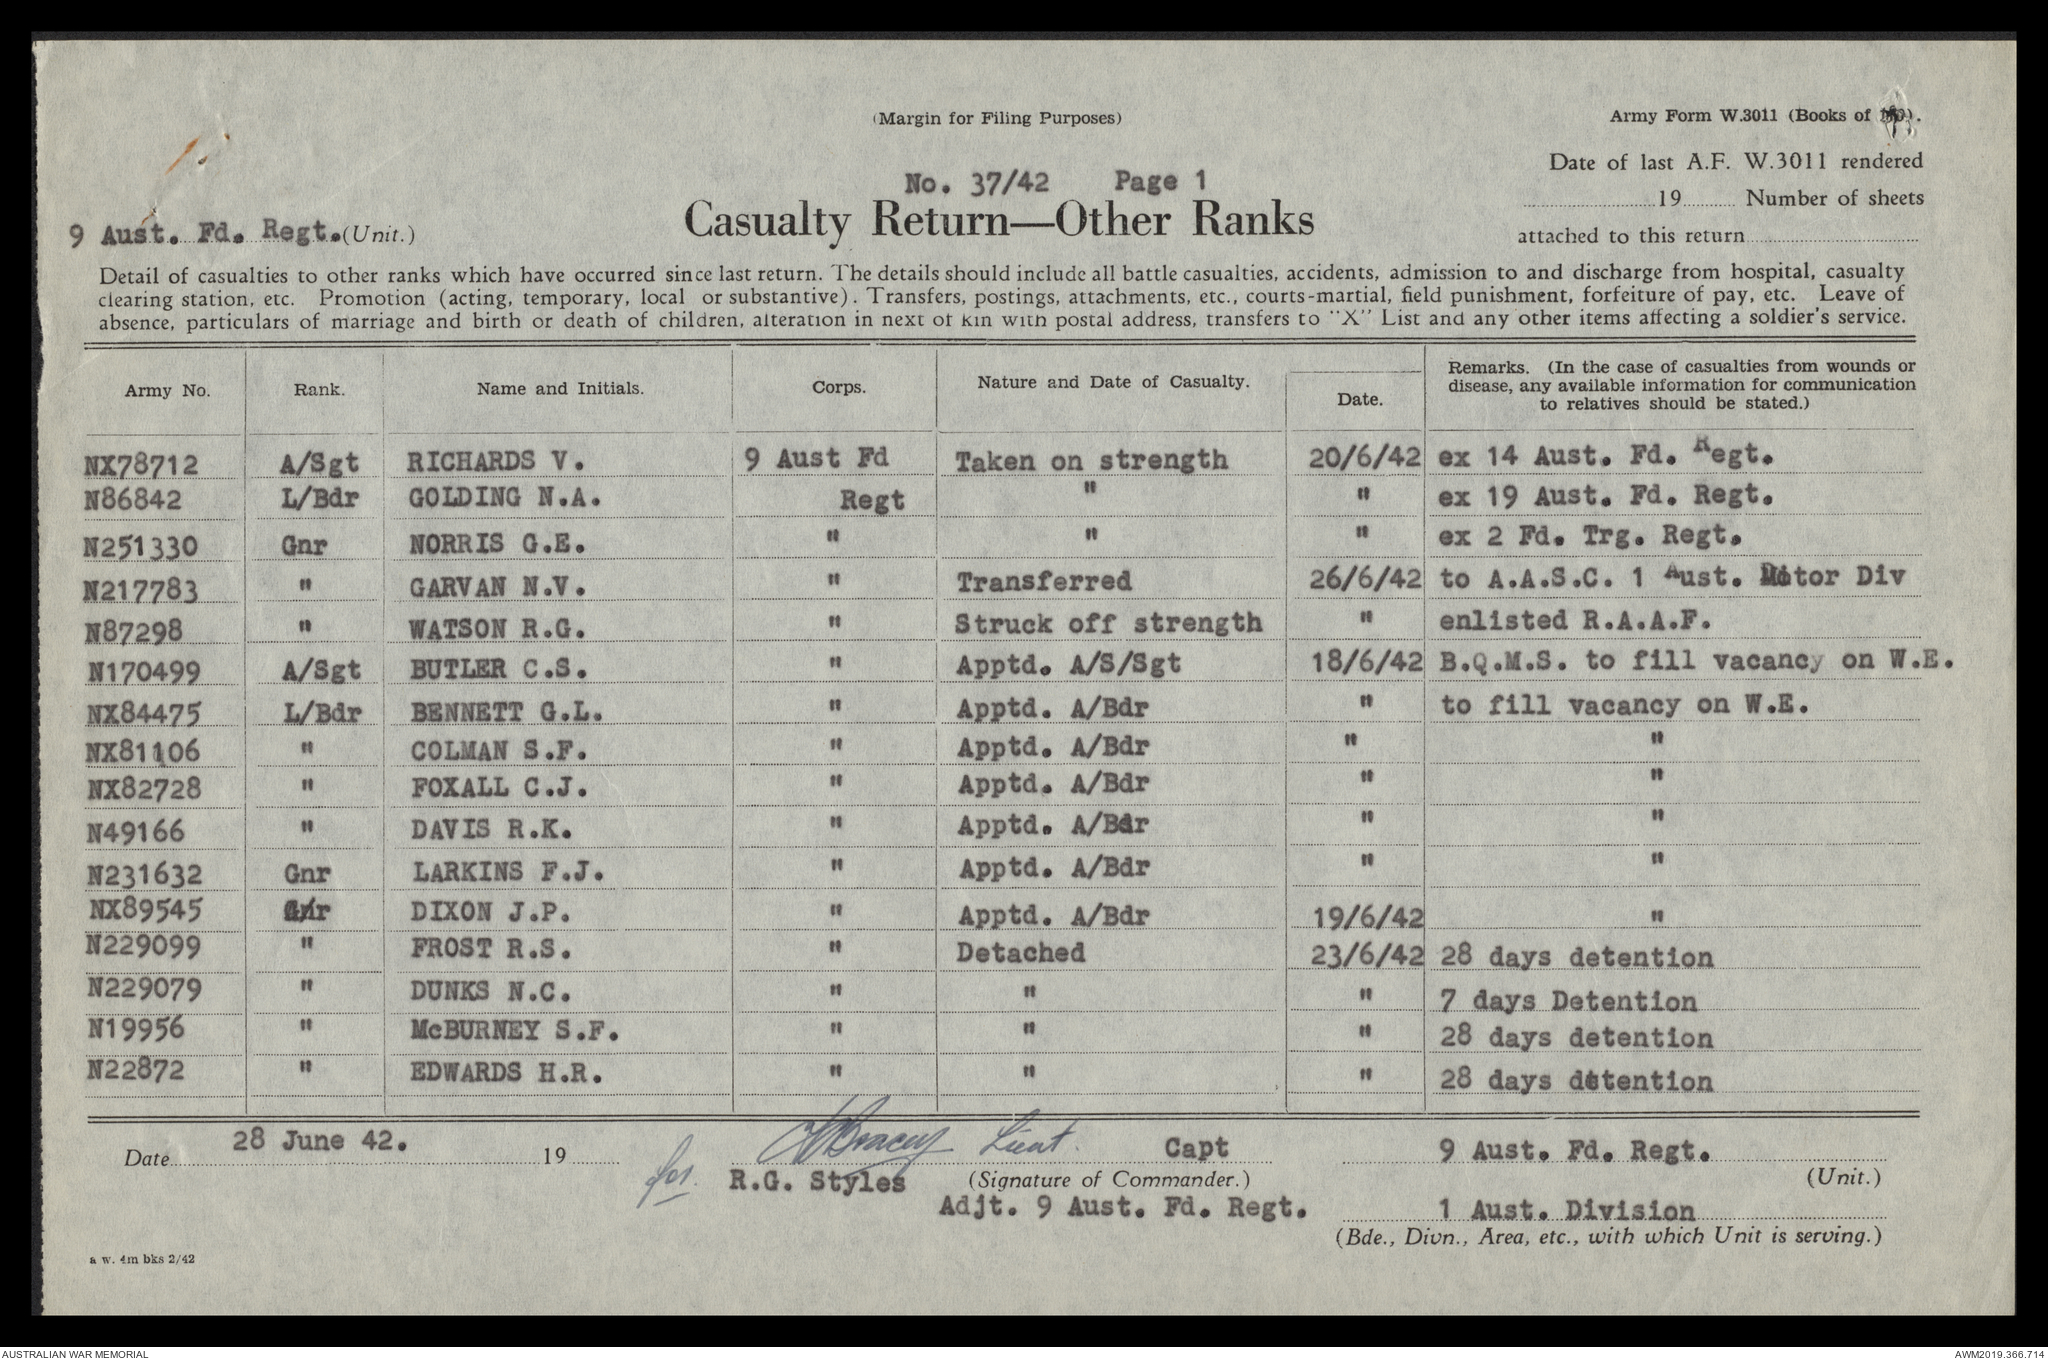 (Margin for Filing Purposes)
Army Form W.3011 (Books of
Date of last A.F. W.3011 rendered
No. 37/42 Page 1
19 Number of sheets
Casualty Return—Other Ranks
9 Aust. Fd. Regt. (Unit.)
attached to this return
Detail of casualties to other ranks which have occurred since last return. The details should include all battle casualties, accidents, admission to and discharge from hospital, casualty
clearing station, etc. Promotion (acting, temporary, local or substantive). Transfers, postings, attachments, etc., courts-martial, field punishment, forfeiture of pay, etc. Leave of
absence, particulars of marriage and birth or death of children, alteration in next of kin with postal address, transfers to "X" List and any other items affecting a soldier's service.
Army No. Rank. Name and Initials. Corps. Nature and Date of Casualty. Date. Remarks. (In the case of casualties from wounds or
disease, any available information for communication
to relatives should be stated.)
NX78712 A/Sgt RICHARDS V. 9 Aust Fd Taken on strength 20/6/42 ex 14 Aust. Fd. Regt.
N86842 L/Bdr GOLDING N.A. Regt " " ex 19 Aust. Fd. Regt.
N251330 Gnr NORRIS G.E. " " " ex 2 Fd. Trg. Regt.
N217783 " GARVAN N.V. " Transferred 26/6/42 to A.A.S.C. 1 Aust. Motor Div
N87298 " WATSON R.G. " Struck off strength " enlisted R.A.A.F.
N170499 A/Sgt BUTLER C.S. " Apptd. A/S/Sgt 18/6/42 B.Q.M.S. to fill vacancy on W.E.
NX84475 L/Bdr BENNETT G.L. " Apptd. A/Bdr " to fill vacancy on W.E.
NX81106 " COLMAN S.F. " Apptd. A/Bdr " "
NX82728 " FOXALL C.J. " Apptd. A/Bdr " "
N49166 " DAVIS R.K. " Apptd. A/Bdr " "
N231632 Gnr LARKINS F.J. " Apptd. A/Bdr " "
NX89545 Gnr DIXON J.P. " Apptd. A/Bdr 19/6/42 "
N229099 " FROST R.S. " Detached 23/6/42 28 days detention
N229079 " DUNKS N.C. " " " 7 days Detention
N19956 " McBURNEY S.F. " " " 28 days detention
N22872 " EDWARDS H.R. " " " 28 days detention
Date 28 June 42. 19 Lieut. Capt 9 Aust. Fd. Regt.
for R.G. Styles (Signature of Commander.) (Unit.)
Adjt. 9 Aust. Fd. Regt. 1 Aust. Division
(Bde., Divn., Area, etc., with which Unit is serving.)
a w. 4m bks 2/42
AUSTRALIAN WAR MEMORIAL AWM2019.366.714